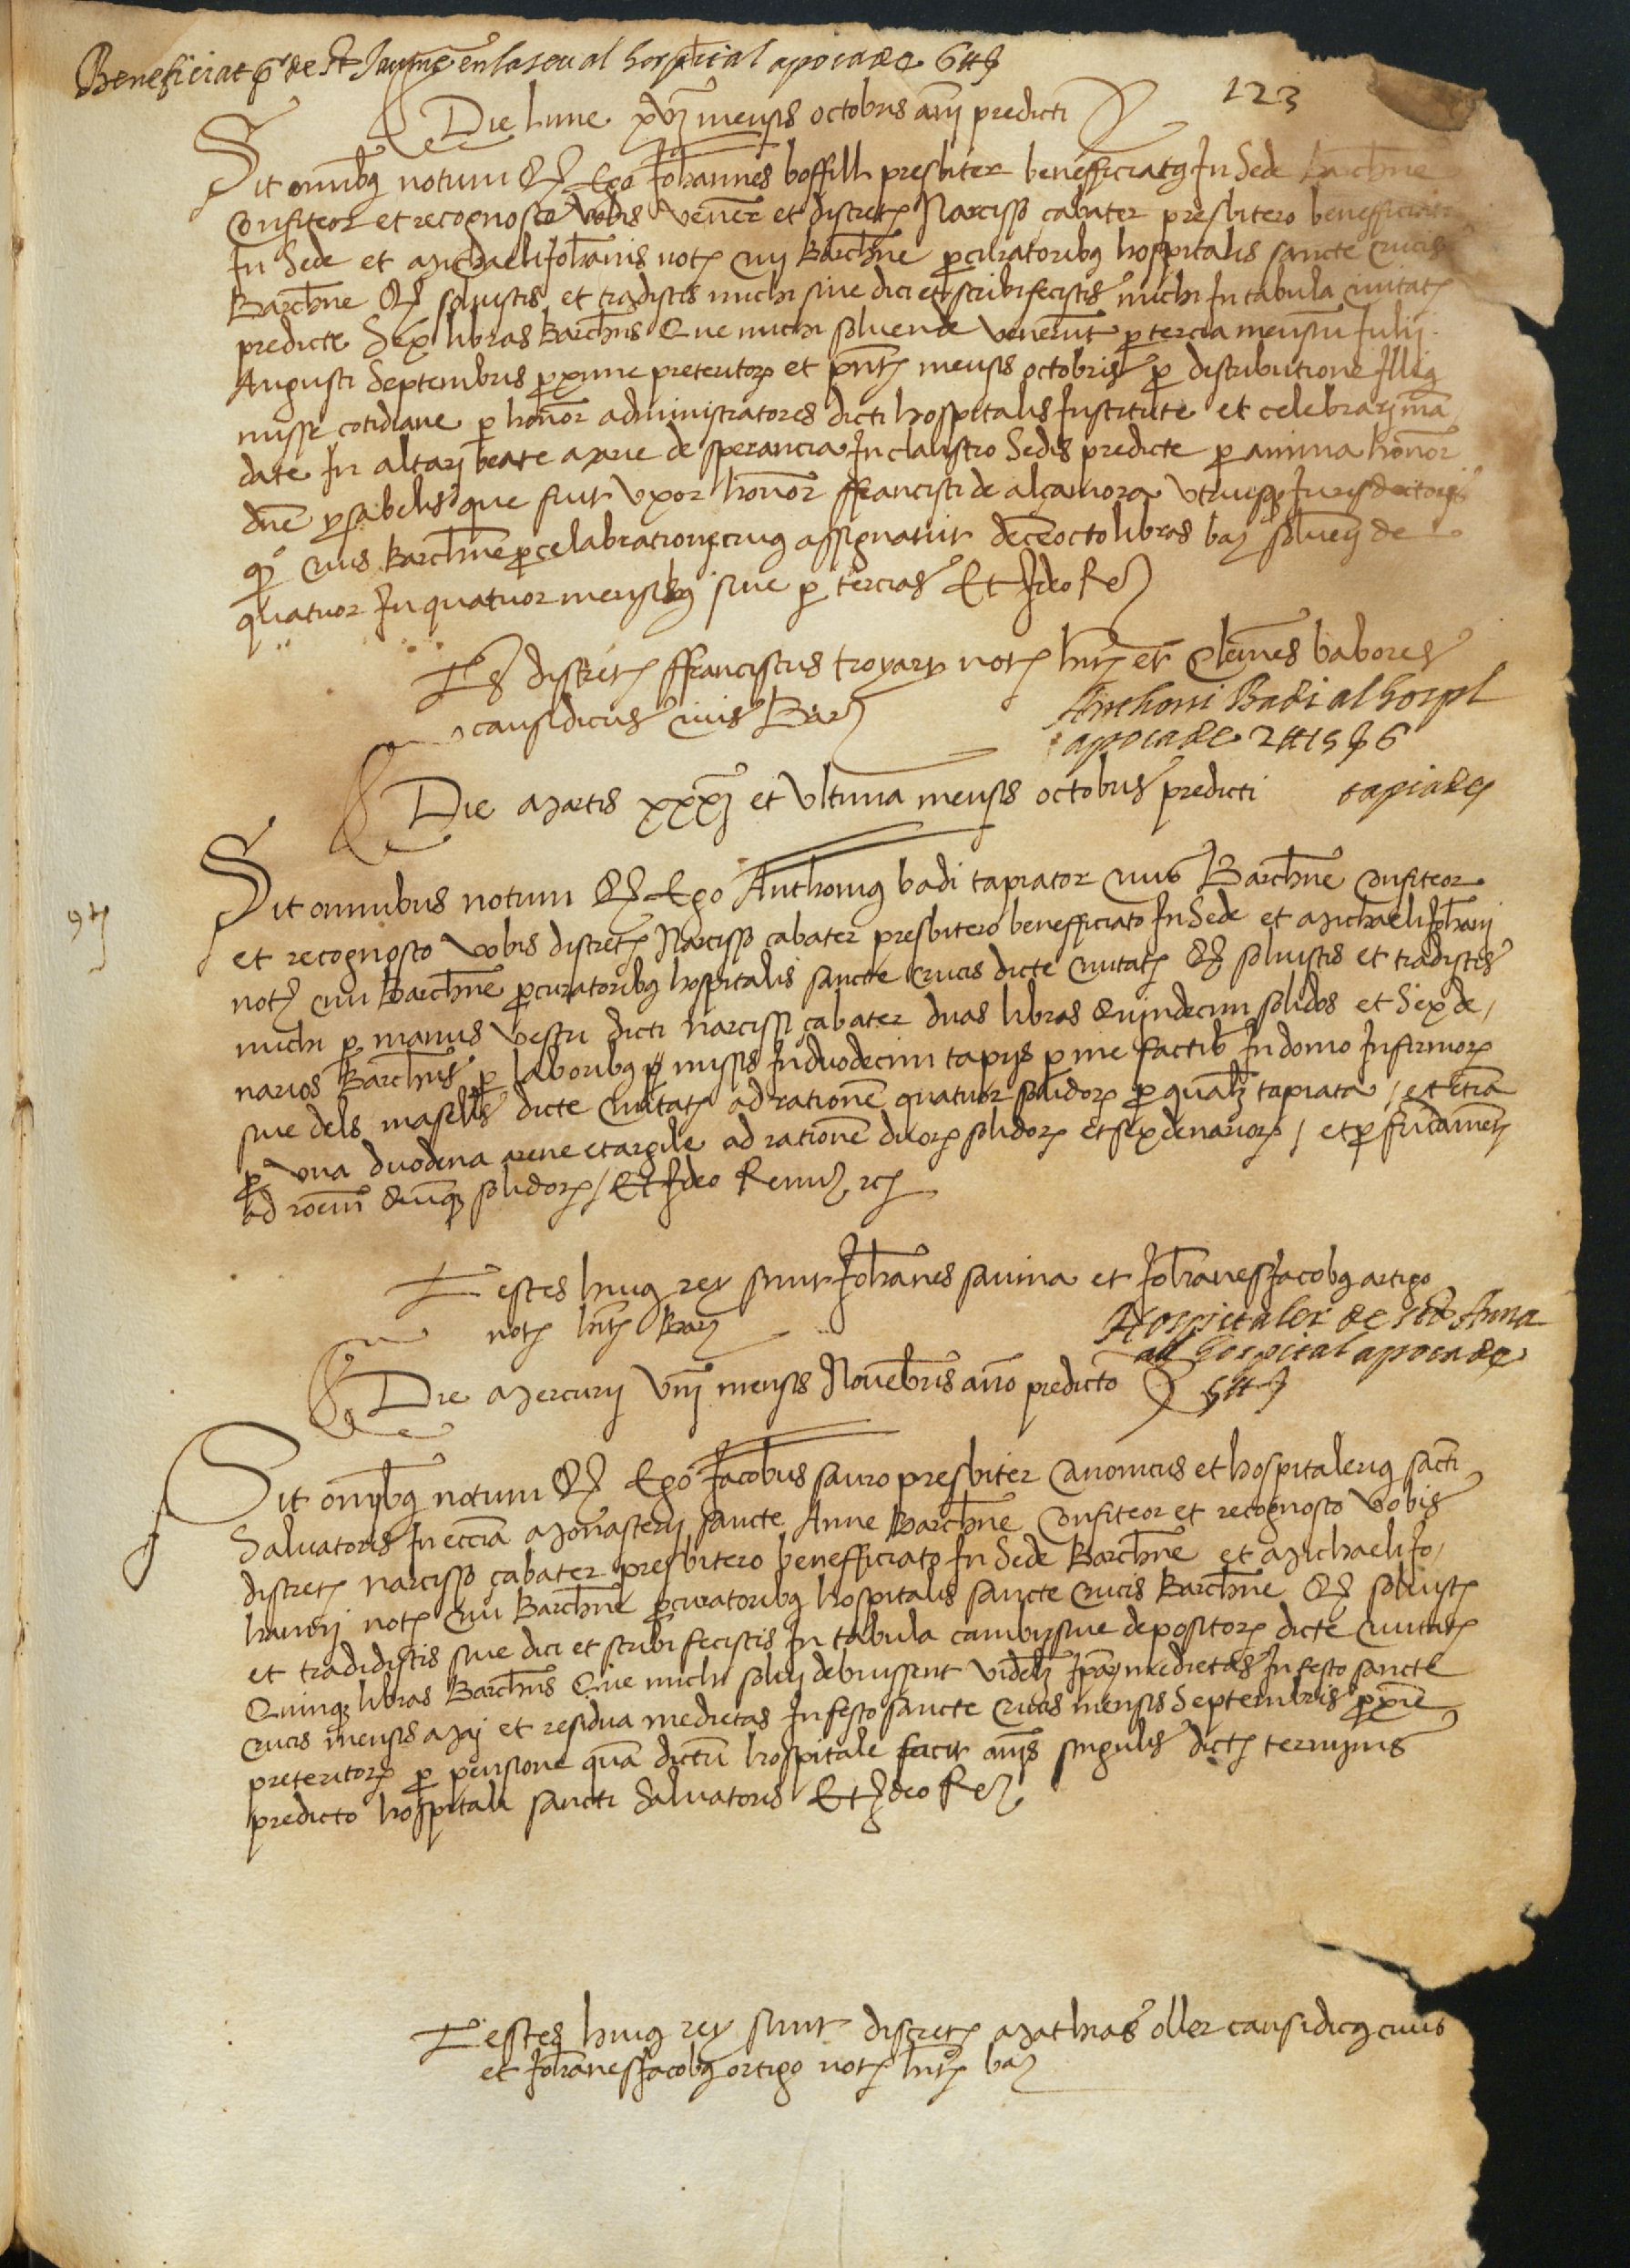 Beneficiat pr de St Jaume en la seu al hospital apoca de 6 ₶
123
Die lune xvj mensis octobris anni predicti
Sit omnibus notum qd Ego Johannes boffill presbiter benefficiatus In Sede Barchne
confiteor et recognosco vobis vener et discret Narcisso çabater presbitero benefficiato
In Sede et Michaeli Johannis not civi Barchne procuratoribus hospitalis sancte crucis
Barchne qd solvistis et tradistis michi sive dici et scribi fecistis michi In tabula civitat
predicte Sex libras Barchns Que michi solvende venerunt pro tercia mensium Julii
Augusti Septembris proxime preteritor et pnt mensis octobris pro distributione Illius
misse cotidiane per honor administratores dicti hospitalis Institute et celebrari man
date In altari beate Marie de sperancia In claustro Sedis predicte pro anima honor
dne ysabelis que fuit uxor honor ffrancisci de alçamora utriusque Juris doctoris
q° civis Barchne pro celebratione cuius assignatur decemocto libras bar solvend de
quatuor In quatuor mensibus sive per tercias Et Ideo Re
Ts discret ffranciscus troyart not hnt et Clemens babores
causidicus civis Bar
Anthoni Badi al hospl
apoca de 2 ₶ 15 s 6
tapiador
Die Martis xxxj et ultima mensis octobris predicti
Sit omnibus notum qd Ego Anthonius badi tapiator civis Barchne confiteor
97
et recognosco vobis discret Narcisso çabater presbitero benefficiato In Sede et Michaeli Johanni
not civi Barchne procuratoribus hospitalis sancte crucis dicte civitat qd solvistis et tradistis
michi per manus vestri dicti Narcissi çabater duas libras Quindecim solidos et Sex de
narios Barchns pro laboribus per missis In duodecim tapiis per me factis In domo Infirmor
sive dels masells dicte civitat ad rationem quatuor solidor pro qualz tapiata / et etiam
pro una duodena arene et argile ad rationem duor solidor et sex denarior / et pro fundament
ad roem Quinque solidor / Et Ideo Renun rc
Testes huius rey sunt Johanes savina et Johanes Jacobus artigo
not hnt Bar
Hospitaler de Sta Anna
al hospital apoca de
5 ₶
Die Mercurii viij mensis Novembris anno predicto
Sit omnibus notum qd Ego Jacobus sauro presbiter canonicus et hospitalerius sancti
Salvatoris In eccia Monasterii sancte Anne Barchne confiteor et recognosco vobis
discret narcisso çabater presbitero benefficiato In Sede Barchne et Michaeli Jo
hanni not civi Barchne procuratoribus hospitalis sancte crucis Barchne qd solvist
et tradidistis sive dici et scribi fecistis In tabula cambii sive depositor dicte civitat
Quinque libras Barchns Que michi solvi debuissent videlz medietas In festo sancte
crucis mensis Maj et residua medietas In festo sancte crucis mensis Septembris proxime
preteritor pro pensione quam dictum hospitale facit annis singulis dict terminis
predicto hospitali sancti Salvatoris Et Ideo Re
Testes huius rey sunt discret Mathias oller causidicus civis
et Johanes Jacobus ortigo not hnt bar